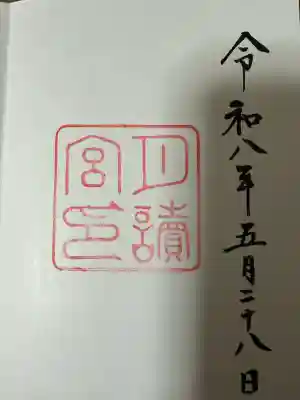 令和八年五月二十八日
月讀
宮印